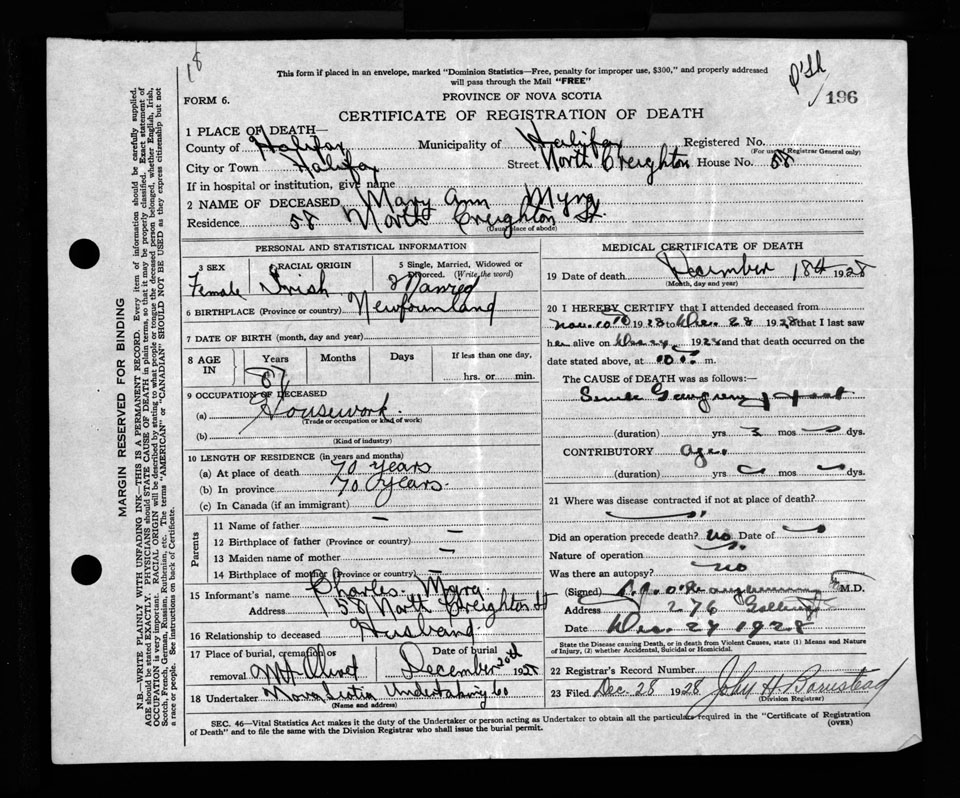 18
This form if placed in an envelope, marked "Dominion Statistics—Free, penalty for improper use, $300," and properly addressed
will pass through the Mail "FREE"
196
FORM 6.
PROVINCE OF NOVA SCOTIA
CERTIFICATE OF REGISTRATION OF DEATH
1 PLACE OF DEATH—
County of Halifax Municipality of Halifax Registered No.
(For use of Registrar General only)
City or Town Halifax Street North Creighton House No. 58
If in hospital or institution, give name
2 NAME OF DECEASED Mary Ann Myra
Residence 58 North Creighton St.
(Usual place of abode)
PERSONAL AND STATISTICAL INFORMATION
3 SEX Female
RACIAL ORIGIN Irish
5 Single, Married, Widowed or Divorced. (Write the word) Married
6 BIRTHPLACE (Province or country) Newfoundland
7 DATE OF BIRTH (month, day and year)
8 AGE IN Years Months Days If less than one day,
hrs. or min.
9 OCCUPATION OF DECEASED
(a) Housework.
(Trade or occupation or kind of work)
(b)
(Kind of industry)
10 LENGTH OF RESIDENCE (in years and months)
(a) At place of death 70 years
(b) In province 70 years.
(c) In Canada (if an immigrant)
Parents
11 Name of father –
12 Birthplace of father (Province or country) –
13 Maiden name of mother –
14 Birthplace of mother (Province or country) –
15 Informant's name Charles Myra
Address 58 North Creighton St
16 Relationship to deceased Husband
17 Place of burial, cremation or removal Mt Olivet
Date of burial December 20th 1928
18 Undertaker Nova Scotia Undertaking Co
(Name and address)
MEDICAL CERTIFICATE OF DEATH
19 Date of death December 18th 1928
(Month, day and year)
20 I HEREBY CERTIFY that I attended deceased from
Nov. 10 1928 to Dec. 28 1928 that I last saw
her alive on 1928 and that death occurred on the
date stated above, at m.
The CAUSE of DEATH was as follows:—
Senile Gangrene of foot
(duration) yrs 3 mos dys.
CONTRIBUTORY Age
(duration) yrs mos dys.
21 Where was disease contracted if not at place of death?
Did an operation precede death? no Date of
Nature of operation
Was there an autopsy? no
(Signed) M.D.
Address 276
Date Dec. 27 1928
State the Disease Causing Death, or in death from Violent Causes, state (1) Means and Nature
of Injury, (2) whether Accidental, Suicidal or Homicidal.
22 Registrar's Record Number
23 Filed Dec. 28 1928 John H. Barnstead
(Division Registrar)
SEC. 46—Vital Statistics Act makes it the duty of the Undertaker or person acting as Undertaker to obtain all the particulars required in the "Certificate of Registration
of Death" and to file the same with the Division Registrar who shall issue the burial permit.
(OVER)
MARGIN RESERVED FOR BINDING
N.B.—WRITE PLAINLY WITH UNFADING INK—THIS IS A PERMANENT RECORD. Every item of information should be carefully supplied.
AGE should be stated EXACTLY. PHYSICIANS should STATE CAUSE OF DEATH in plain terms, so that it may be properly classified. Exact statement of
OCCUPATION is very important. RACIAL ORIGIN will be described by stating to what people or tongue the deceased person belonged, whether English, Irish,
Scotch, French, German, Russian, Ruthenian, etc. The terms "AMERICAN" or "CANADIAN" SHOULD NOT BE USED as they express citizenship but not
a race or people. See instructions on back of Certificate.